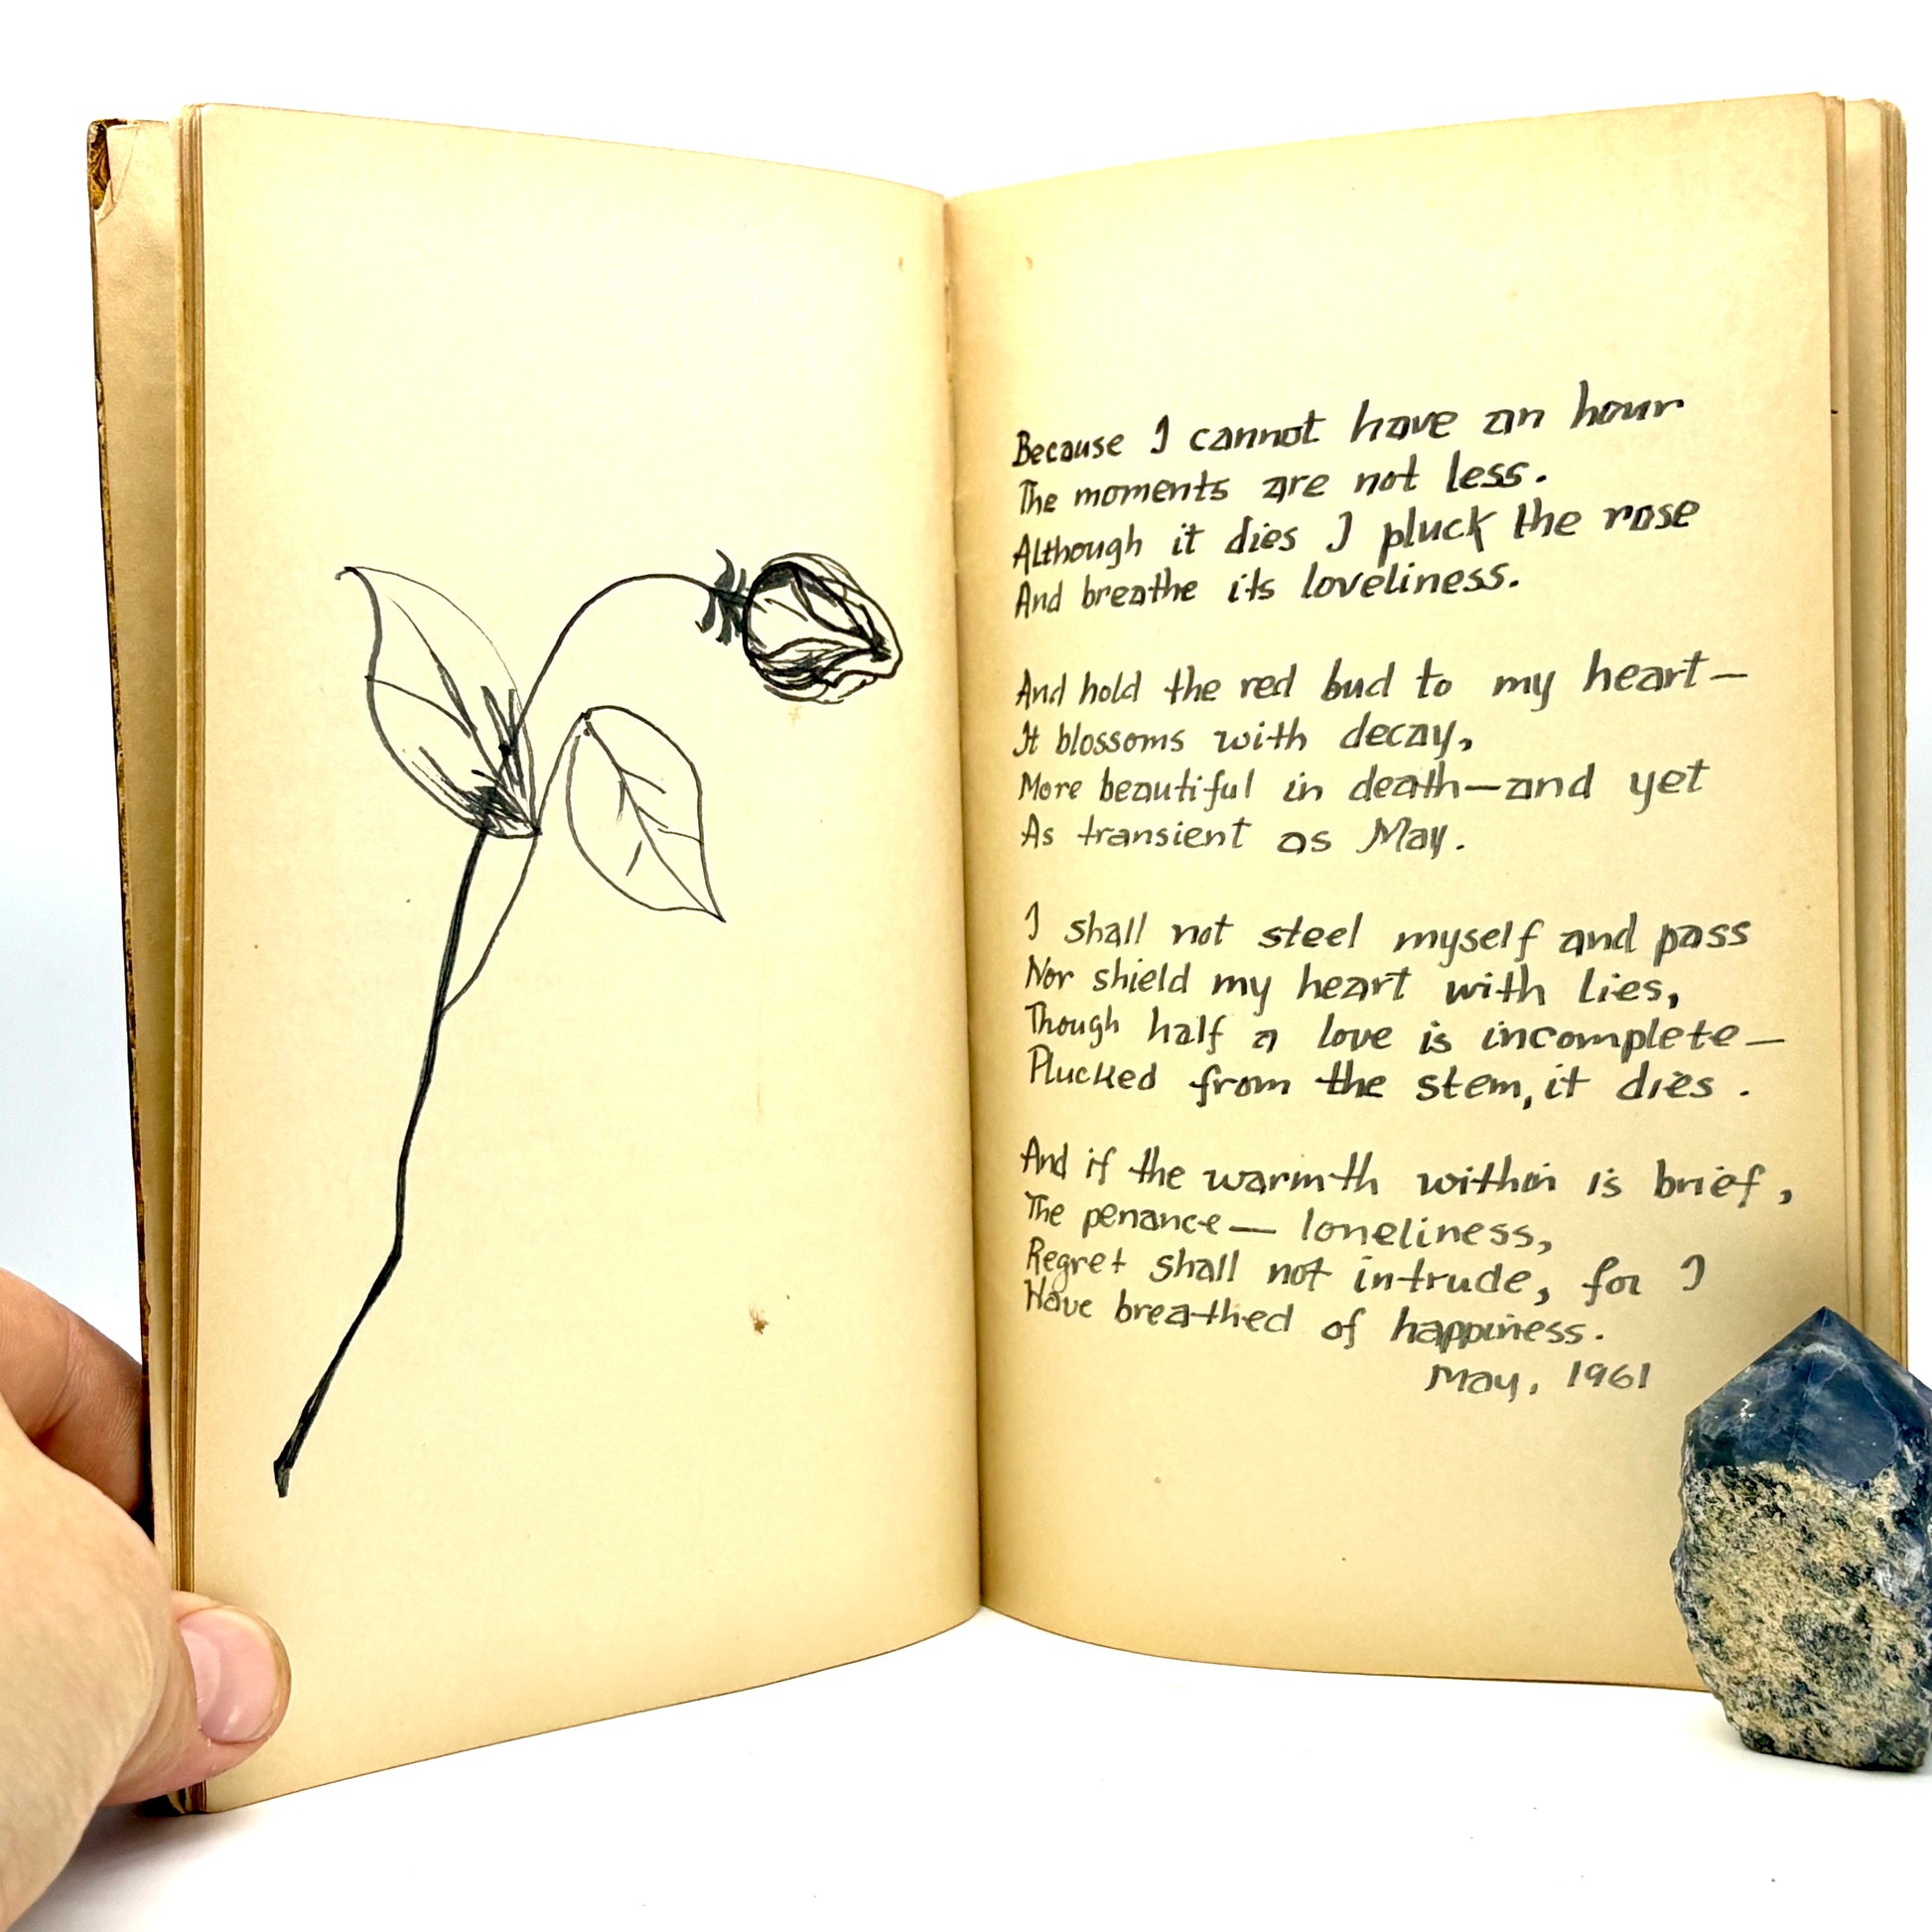 Because I cannot have an hour
The moments are not less.
Although it dies I pluck the rose
And breathe its loveliness.
And hold the red bud to my heart—
It blossoms with decay,
More beautiful in death—and yet
As transient as May.
I shall not steel myself and pass
Nor shield my heart with lies,
Though half a love is incomplete—
Plucked from the stem, it dies.
And if the warmth within is brief,
The penance— loneliness,
Regret shall not intrude, for I
Have breathed of happiness.
May, 1961